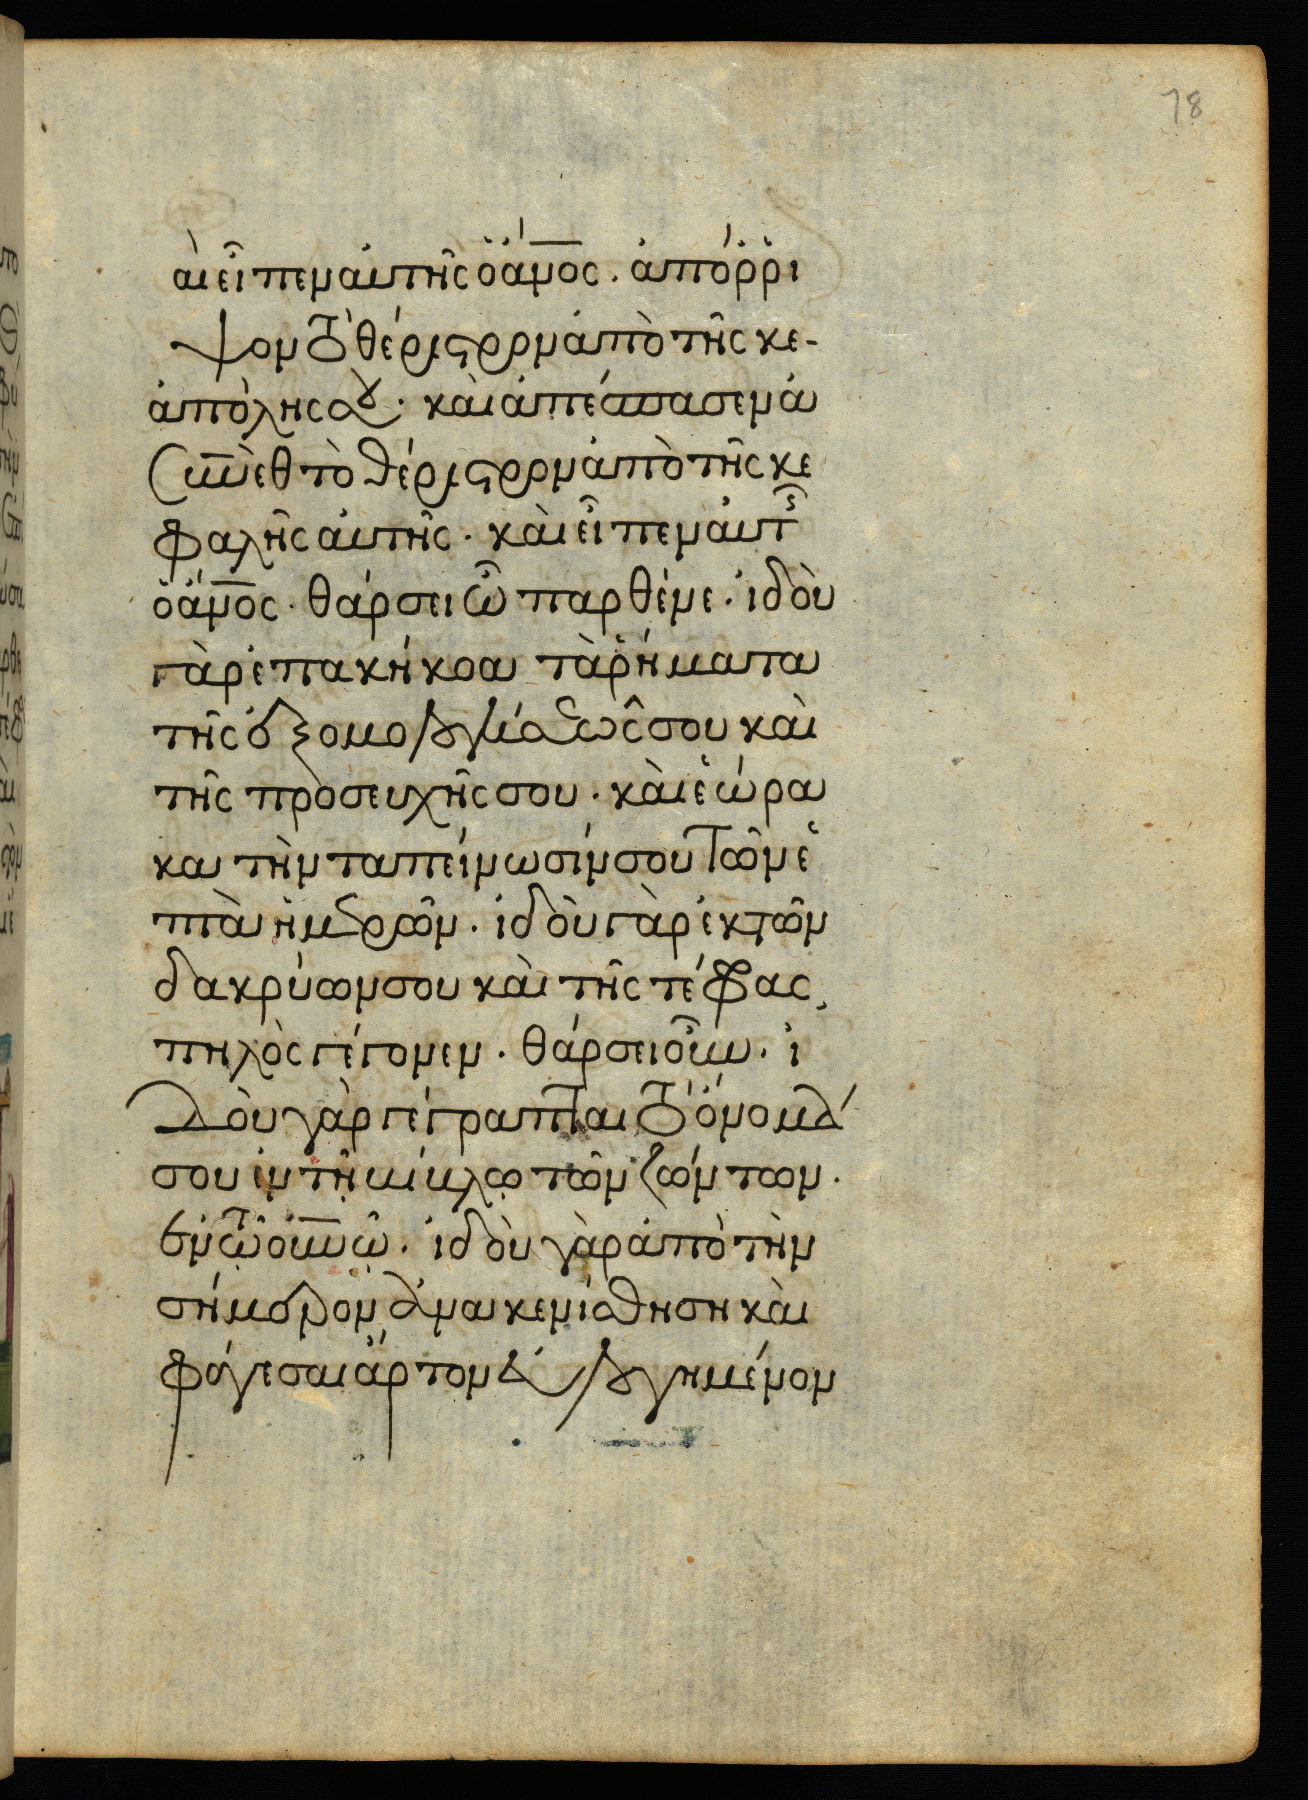 78
αὶ εἶπεν αὐτῆς ὁ ἄνος. ἀπόρρι
ψον τὸ θέριστρον ἀπὸ τῆς κε-
καὶ ἀπέσπασεν ἀ
τὸ θέριστρον ἀπὸ τῆς κε
φαλῆς αὐτῆς. καὶ εἶπεν αὐτῇ
ὁ ἄνος. θάρσει ὦ παρθένε. ἰδοὺ
γὰρ ἐπακήκοα τὰ ῥήματα
τῆς ἐξομολογήσεώς σου καὶ
τῆς προσευχῆς σου. καὶ ἑώρα
κα τὴν ταπείνωσίν σου τῶν ἑ
πτὰ ἡμερῶν. ἰδοὺ γὰρ ἐκ τῶν
δακρύων σου καὶ τῆς τέφας
πηλὸς γέγονεν. θάρσει οὖν. ἰ
δοὺ γὰρ γέγραπται τὸ ὄνομά
σου ἐν τῇ κύκλῳ τῶν ζώντων.
ἐν τῷ οὐνῷ. ἰδοὺ γὰρ ἀπὸ τὴν
σήμερον ἀνακενιάθηση καὶ
φάγεσαι ἄρτον εὐλογημένον